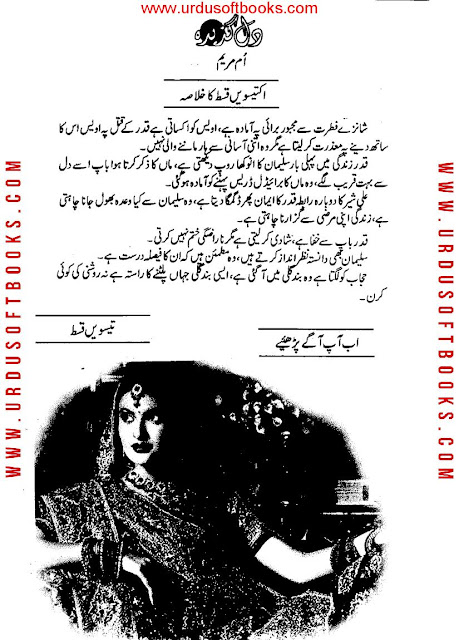 www.urdusoftbooks.com
دل گزیدہ
اُم مریم
اکتیسویں قسط کا خلاصہ
شانزے فطرت سے مجبور برائی پہ آمادہ ہے، اویس کو اکساتی ہے قدر کے قتل پہ اویس اس کا
ساتھ دینے پہ معذرت کر لیتا ہے مگر وہ اتنی آسانی سے ہار ماننے والی نہیں۔
قدر زندگی میں پہلی بار سلیمان کا انوکھا روپ دیکھتی ہے، ماں کا ذکر کرتا ہوا باپ اسے دل
سے بہت قریب لگے، وہ ماں کا برائیڈل ڈریس پہننے کو آمادہ ہو گئی۔
علی شیر کا دوبارہ رابطہ قدر کا ایمان پھر ڈگمگا دیتا ہے، وہ سلیمان سے کیا وعدہ بھول جانا چاہتی
ہے، زندگی اپنی مرضی سے گزارنا چاہتی ہے۔
قدر باپ سے خفا ہے، شادی کر لیتی ہے مگر ناراضگی ختم نہیں کرتی۔
سلیمان بھی دانستہ نظر انداز کرتے ہیں، وہ مطمئن ہیں کہ ان کا فیصلہ درست ہے۔
حجاب کو لگتا ہے وہ بند گلی میں آ گئی ہے، ایسی بند گلی جہاں پلٹنے کا راستہ ہے نہ روشنی کی کوئی
کرن۔
تیسویں قسط
اب آپ آگے پڑھئیے
WWW.URDUSOFTBOOKS.COM
WWW.URDUSOFTBOOKS.COM